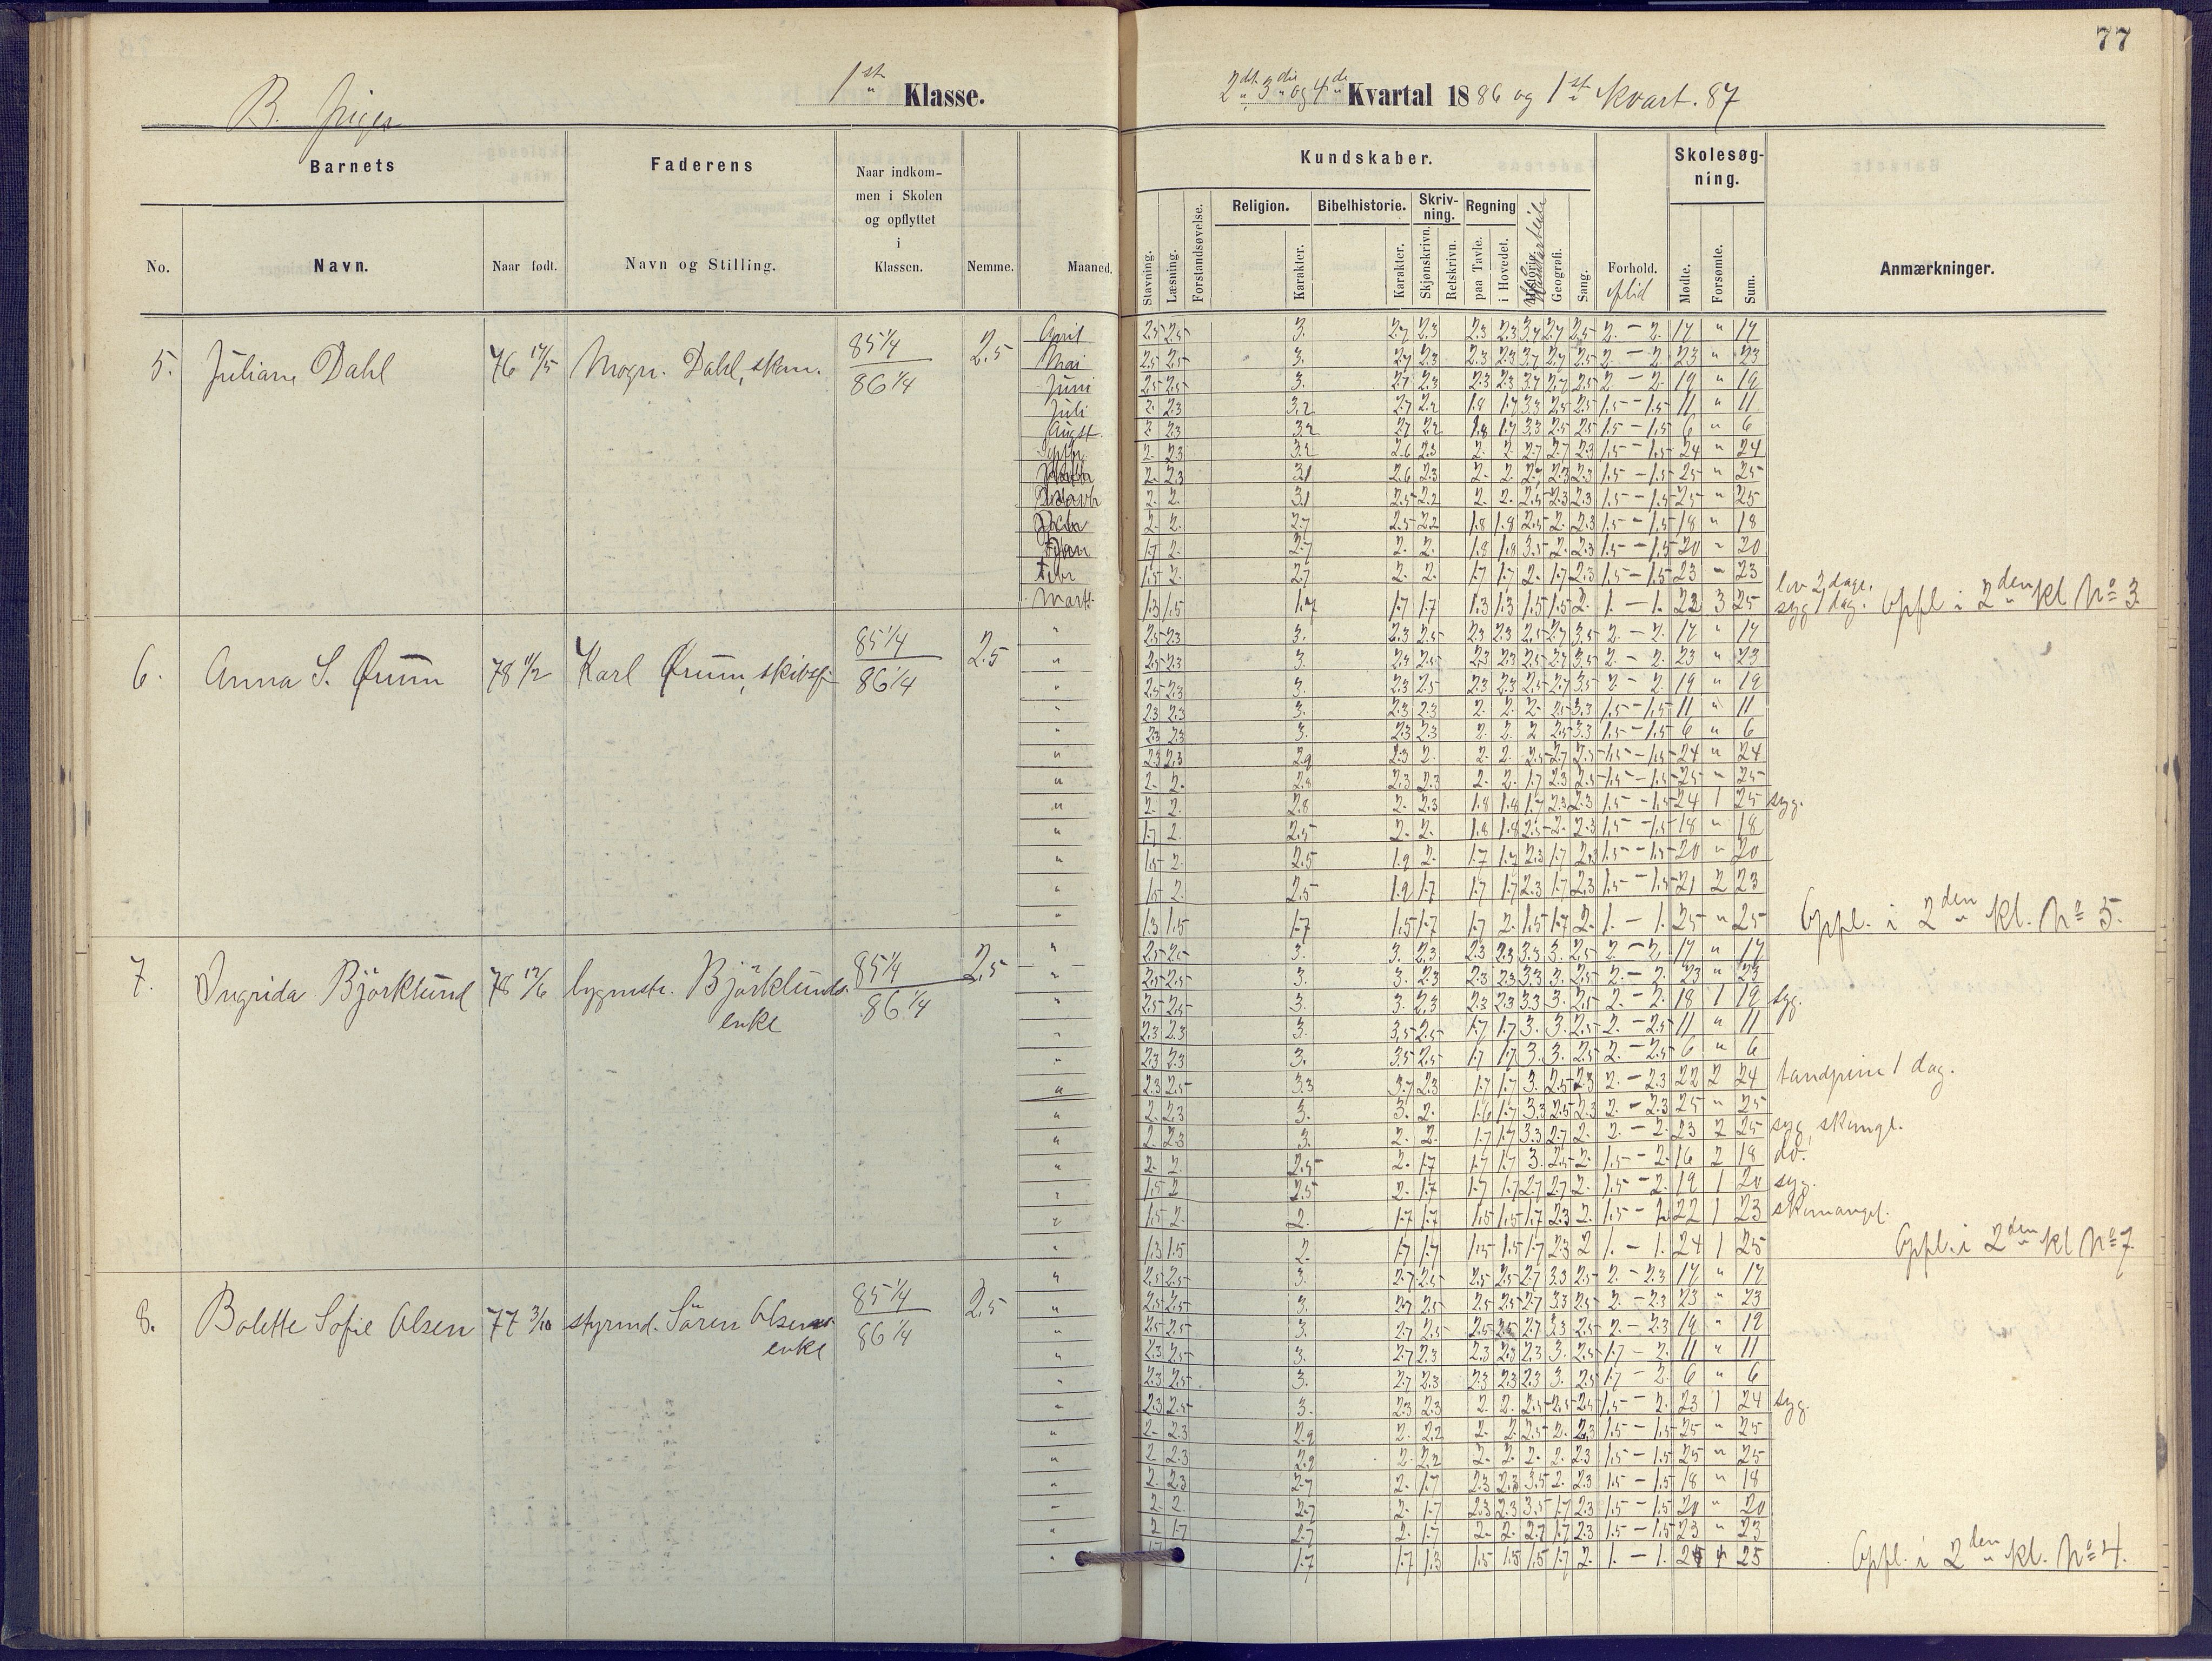 77
B. Piger
1ste Klasse.
2det 3die og 4de Kvartal 1886 og 1ste Kvart. 87
Barnets
Faderens
Naar indkommen i Skolen og opflyttet i Klassen.
Nemme.
Maaned.
No.
Navn.
Naar født.
Navn og Stilling.
Kundskaber.
Skolesøgning.
Stavning.
Læsning.
Forstandsøvelse.
Religion.
Karakter.
Bibelhistorie.
Karakter.
Skrivning.
Skjønskrivn.
Retskrivn.
Regning
paa Tavle.
i Hovedet.
Historie.
Haandarbeide
Geografi.
Sang.
Forhold.
flid
Mødte.
Forsømte.
Sum.
Anmærkninger.
5. Juliane Dahl 76 17/5 Mogn. Dahl, skm. 85 1/4 86 1/4 2.5
April 2.5 2.5 3. 2.7 2.3 2.3 2.3 3.7 2.7 2.5 2. - 2. 17 " 17
Mai 2.5 2.5 3. 2.7 2.3 2.3 2.3 3.7 2.7 2.5 2. - 2. 23 " 23
Juni 2.5 2.5 3. 2.7 2.3 2.3 2.3 3.7 2.7 2.5 2. - 2. 19 " 19
Juli 2. 2.3 3.2 2.7 2.2 1.8 1.7 3.3 2.5 2.5 1.5 - 1.5 11 " 11
Augst. 2. 2.3 3.2 2.7 2.2 1.8 1.7 3.3 2.5 2.5 1.5 - 1.5 6 " 6
Septb. 2. 2.3 3.2 2.6 2.3 2. 2. 2.7 2.7 2.3 1.5 - 1.5 24 " 24
2. 2.3 3.1 2.6 2.3 2. 2. 2.7 2.3 2.3 1.5 - 1.5 25 " 25
2. 2. 3.1 2.5 2.2 2. 2. 2.5 2.3 2.3 1.5 - 1.5 25 " 25
2. 2. 2.7 2.5 2.2 1.8 1.8 2.5 2. 2.3 1.5 - 1.5 18 " 18
Jan 1.7 2. 2.7 2. 2. 1.8 1.8 3.5 2. 2.3 1.5 - 1.5 20 " 20
Febr 1.5 2. 2.7 2. 2. 1.7 1.7 2. 1.7 2.3 1.5 - 1.5 23 " 23
Marts 1.3 1.5 1.7 1.7 1.7 1.3 1.3 1.5 1.5 2. 1. - 1. 22 3 25 lov 2 dage. syg 1 dag. Opfl i 2den kl No 3
6. Anna S. Ørum 78 11/2 Karl Ørum, skibsf 85 1/4 86 1/4 2.5
" 2.5 2.3 3. 2.3 2.5 2.3 2.3 2.5 2.7 3.5 2. - 2. 17 " 17
" 2.5 2.3 3. 2.3 2.5 2.3 2.3 2.5 2.7 3.5 2. - 2. 23 " 23
" 2.5 2.3 3. 2.3 2.5 2.3 2.3 2.5 2.7 3.5 2. - 2. 19 " 19
" 2.3 2.3 3. 2.3 2.3 2. 2. 2. 2.5 3.3 1.5 - 1.5 11 " 11
" 2.3 2.3 3. 2.3 2.3 2. 2. 2 2.5 3.3 1.5 - 1.5 6 " 6
" 2.3 2.3 2.9 2.3 2. 2. 2. 2.5 2.7 2.5 1.5 - 1.5 24 " 24
" 2. 2. 2.8 2.3 2.3 2. 2. 1.7 2.3 2.5 1.5 - 1.5 25 " 25
" 2. 2. 2.8 2. 2.3 1.8 1.8 1.7 2.3 2.3 1.5 - 1.5 24 1 25 syg.
" 1.7 2. 2.5 2. 2. 1.8 1.8 2.5 2. 2.3 1.5 - 1.5 18 " 18
" 1.5 2. 2.5 1.9 2. 1.7 1.7 2.3 1.7 2.3 1.5 - 1.5 20 " 20
" 1.5 2. 2.5 1.9 1.7 1.7 1.7 2.3 1.7 2.3 1.5 - 1.5 21 2 23
" 1.3 1.5 1.7 1.5 1.7 1.7 2. 1.5 1.7 2. 1. - 1. 25 " 25 Opfl. i 2den kl. No 5.
7. Ingrida Björklund 78 17/6 bygmstr. Björklunds enke 85 1/4 86 1/4 2.5
" 2.5 2.5 3. 3. 2.3 2.3 2.3 3.3 3. 2.5 2. - 2. 17 " 17
" 2.5 2.5 3. 3. 2.3 2.3 2.3 3.3 3. 2.5 2. - 2. 23 " 23
" 2.5 2.5 3. 3. 2.3 2.3 2.3 3.3 3. 2.5 2. - 2. 18 1 19 syg.
" 2.3 2.3 3. 3.5 2.5 1.7 1.7 3. 3. 2.5 2. - 2.5 11 " 11
" 2.3 2.3 3. 3.5 2.5 1.7 1.7 3. 3. 2.5 2. - 2.5 6 " 6
" 2.3 2.5 3.3 3.7 2.3 1.7 1.7 3. 2.5 2.3 2. - 2.3 22 2 24 tandpine 1 dag.
" 2. 2.3 3. 3. 2. 1.6 1.7 3.3 2.5 2.3 2. - 2.3 25 " 25
" 2. 2.3 3. 2. 2. 1.7 1.7 3.3 2.7 2. 2. - 2. 23 2 25 syg, skomgl.
" 2. 2. 2.5 2. 1.7 1.7 1.7 3. 2.5 2. 1.5 - 2. 16 2 18 do.
" 1.5 2 2.5 2. 1.7 1.7 1.7 2.7 2.7 2. 1.5 - 2. 19 1 20 syg.
" 1.5 2. 2. 1.7 1.7 1.5 1.5 1.7 2.3 2. 1.5 - 2 22 1 23 skomangel.
" 1.3 1.5 2. 1.7 1.7 1.5 1.5 1.7 2.3 2 1. - 1. 24 1 25 Opfl. i 2den kl No 7
8. Bolette Sofie Olsen 77 3/10 styrmd. Sören Olsens enke 85 1/4 86 1/4 2.5
" 2.5 2.5 3. 2.7 2.5 2.5 2.5 2.7 3.3 2.5 2. - 2.3 17 " 17
" 2.5 2.5 3. 2.7 2.5 2.5 2.5 2.7 3.3 2.5 2. - 2.3 23 " 23
" 2.5 2.5 3. 2.7 2.5 2.5 2.5 2.7 3.3 2.5 2. - 2.3 19 " 19
" 2.3 2.5 3. 2.7 2.3 2.3 2.3 2.3 3. 2.5 1.7 - 2. 11 " 11
" 2.3 2.5 3. 2.7 2.3 2.3 2.3 2.3 3. 2.5 1.7 - 2. 6 " 6
" 2.3 2.5 3. 2.3 2.3 2. 2. 2.5 2.5 2.5 1.5 - 2. 23 1 24 syg.
" 2. 2.3 2.9 2. 2.2 2. 2. 2.5 2. 2.3 1.5 - 1.5 25 " 25
" 2 2.3 2.9 2. 2.2 2. 2. 2. 2. 2.3 1.5 - 1.5 25 " 25
" 2. 2.3 2.7 2. 1.7 2.3 2.3 3.5 2. 2.3 1.5 - 1.5 18 " 18
" 2. 2. 2.7 2. 1.7 2.3 2.3 3.5 1.7 2.3 1.5 - 1.5 20 " 20
" 2 1.7 2.7 2. 1.7 2. 2. 2.7 1.7 2.3 1.5 - 1.5 23 " 23
" 1.7 1.7 1.3 1.5 1.5 1.5 1.7 2. 1. - 1. 25 " 25 Opfl. i 2den kl. No 4.